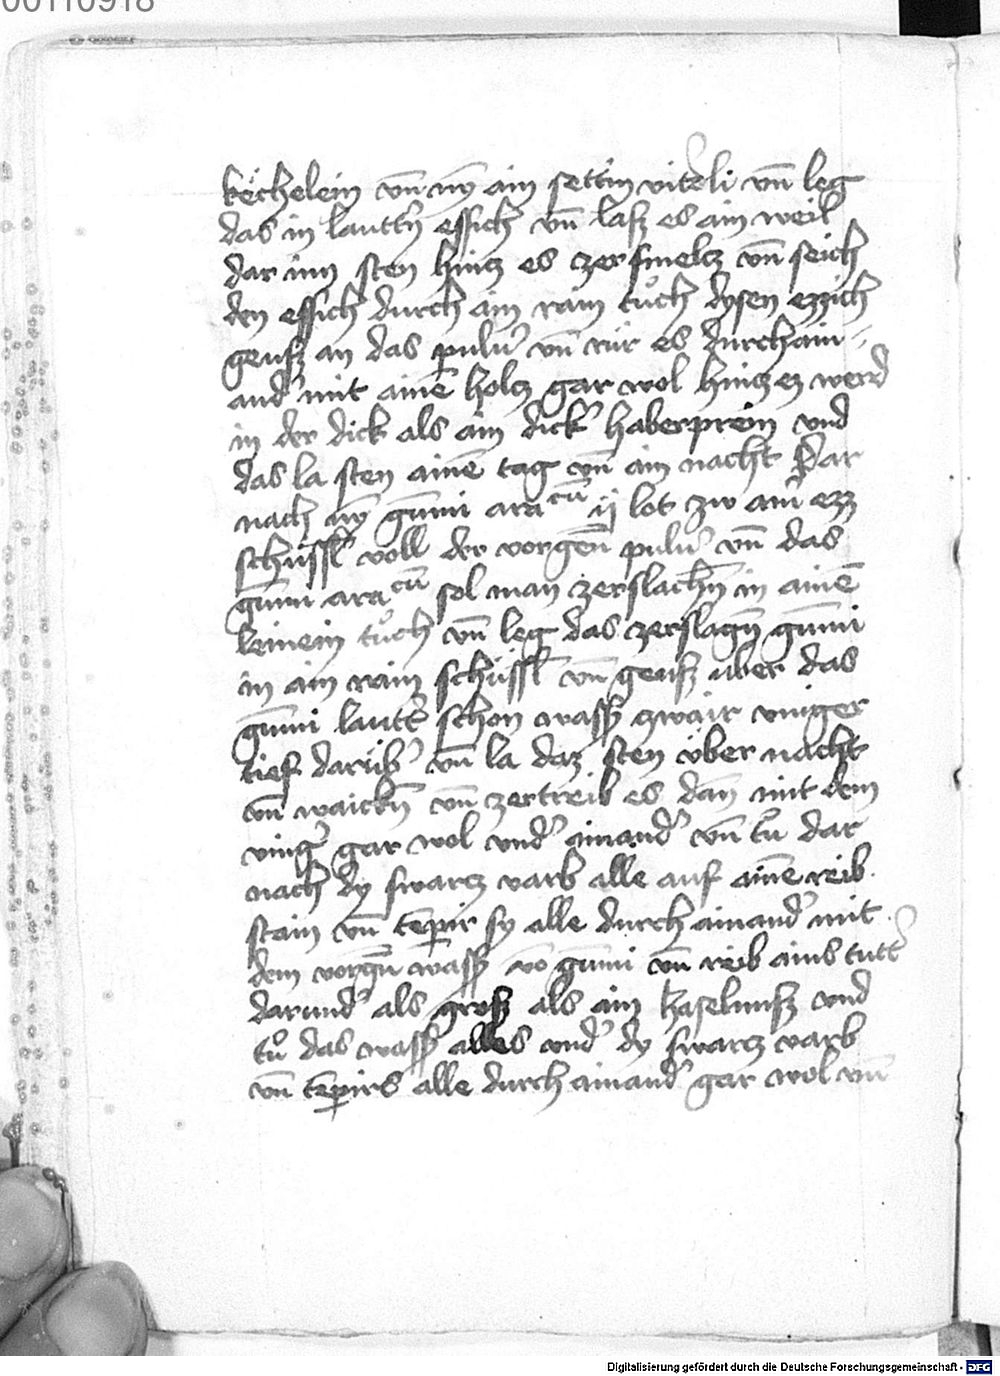 00110918
kechelein vnd ny ain settin viteli vn̄ leg
das in lauttn̄ essich vn̄ lasz es ain weil
dar inn sten hincz es zersmelcz vn̄ seich
den essich durch ain rain tuͦch dysen ezzich
geusz an das puluer vn̄ rür es durchain
and' mit ainē holcz gar wol hincz ez werd
in der dick als ain dick' haberprein vnd
das la sten ainē tag vn̄ ain nacht Dar
nach nȳ gūmi ara cū ij lot zw ain' ezz
schüssl voll der vorgen̄ puluer vn̄ das
gūmi ara cū sol man zerslachn̄ in ainē
leinein tuͦch vn̄ leg das zerslagn̄ gūmi
in ain rain schüssl vn̄ geusz uber das
gūmi lautt' schon wass' zwair vinger
tief darüb' vn̄ la daz sten über nacht
vn̄ waickn̄ vn̄ zertreib es dan̄ mit dem
ving' gar wol vnd' ainand' vn̄ tū dar
nach dy swarcz varb alle auf ainē reib
stain vn̄ tēpir sy alle durch ainand' mit
dem vorgn̄ wass' vō gūmi vn̄ reib ains tutt'
darund' als grosz als ain haselnusz vnd
tuͦ das wass' alles vnd' dy swarcz varb
vn̄ tēpirs alle durch ainand' gar wol vn̄
Digitalisierung gefördert durch die Deutsche Forschungsgemeinschaft - DFG